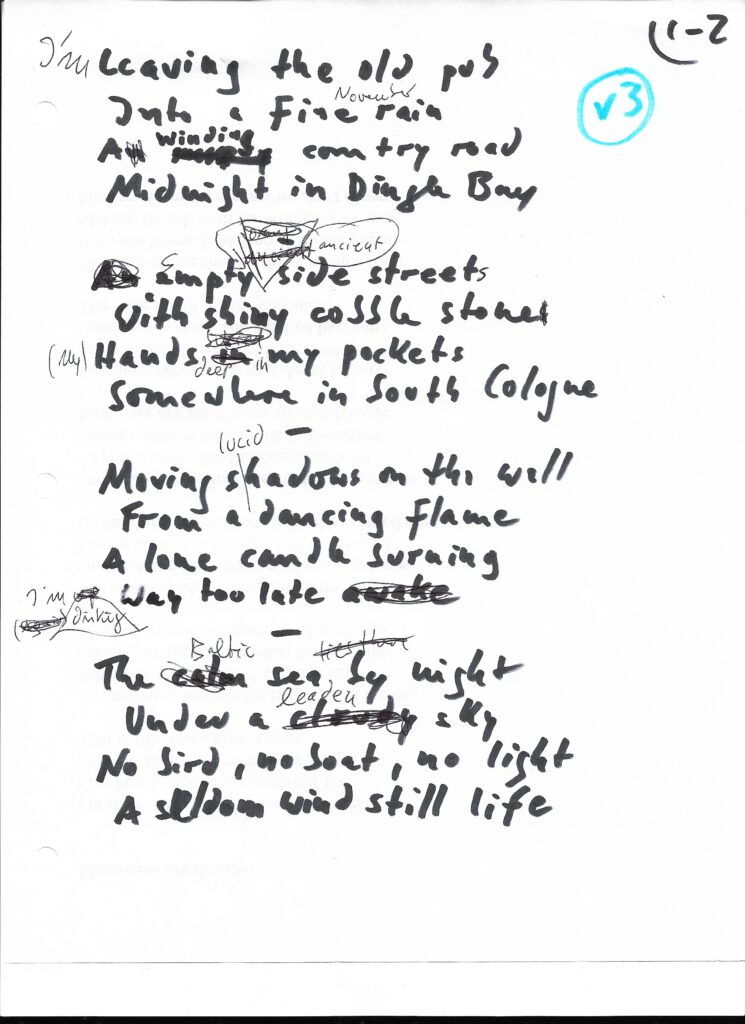 11-2
v3
I'm Leaving the old pub
November
Into a fine rain
Winding
A country road
Midnight in Dingle Bay
ancient
ancient
Empty side streets
With shiny cobble stones
(My) Hands in my pockets
deep in
Somewhere in South Cologne
lucid
Moving shadows on the wall
From a dancing flame
A lone candle burning
I'm Way too late awake
Baltic lies there
The calm sea by night
leaden
Under a cloudy sky
No bird, no boat, no light
A seldom wind still life